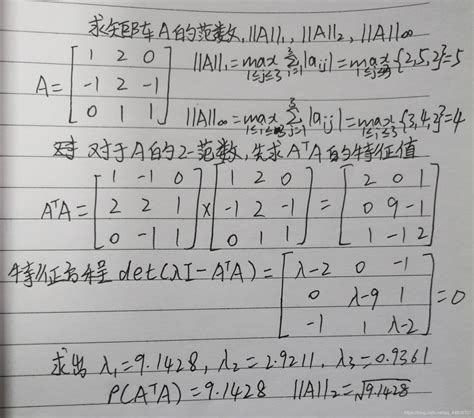 求矩阵A的范数,||A||₁, ||A||₂, ||A||∞
A = [1 2 0; -1 2 -1; 0 1 1] ||A||₁ = max_{1≤j≤3} Σ_{i=1}^{3} |a_{ij}| = max_{1≤j≤3} {2,5,2} = 5
||A||∞ = max_{1≤i≤3} Σ_{j=1}^{3} |a_{ij}| = max_{1≤i≤3} {3,4,2} = 4
对于A的2-范数,先求AᵀA的特征值
AᵀA = [1 -1 0; 2 2 1; 0 -1 1] × [1 2 0; -1 2 -1; 0 1 1] = [2 0 1; 0 9 -1; 1 -1 2]
特征方程 det(λI-AᵀA) = [λ-2 0 -1; 0 λ-9 1; -1 1 λ-2] = 0
求出 λ₁=9.1428, λ₂=2.9211, λ₃=0.9361
ρ(AᵀA)=9.1428 ||A||₂=√9.1428